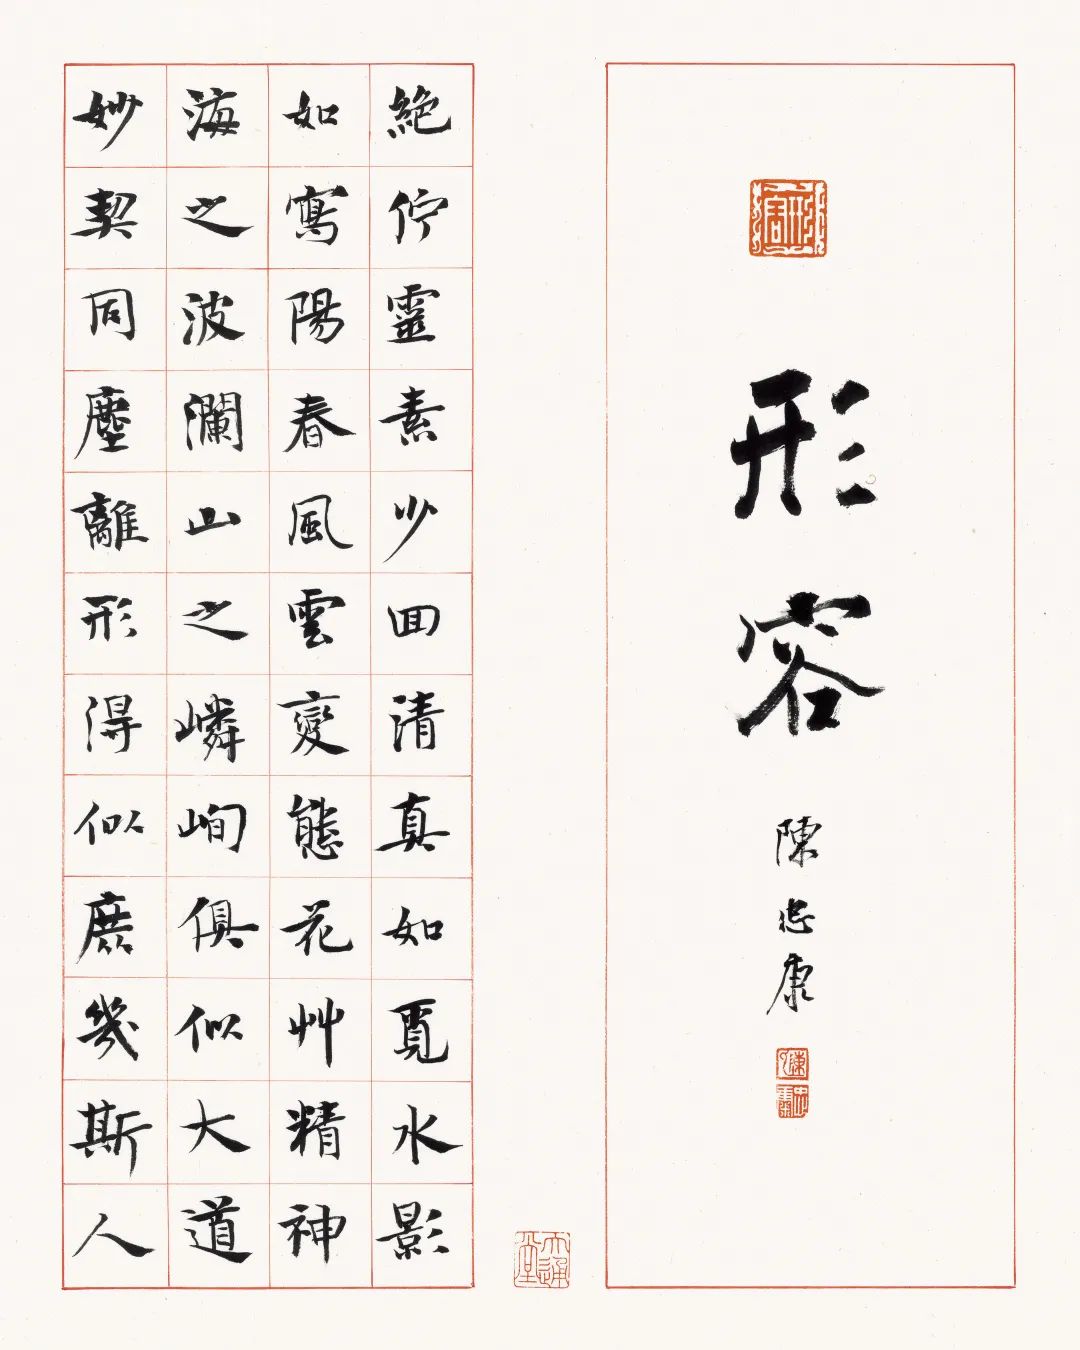 形容
陳忠康
絶佇靈素少囬清真如覓水影
如寫陽春風雲變態花艸精神
海之波瀾山之嶙峋俱似大道
妙契同塵離形得似庶幾斯人